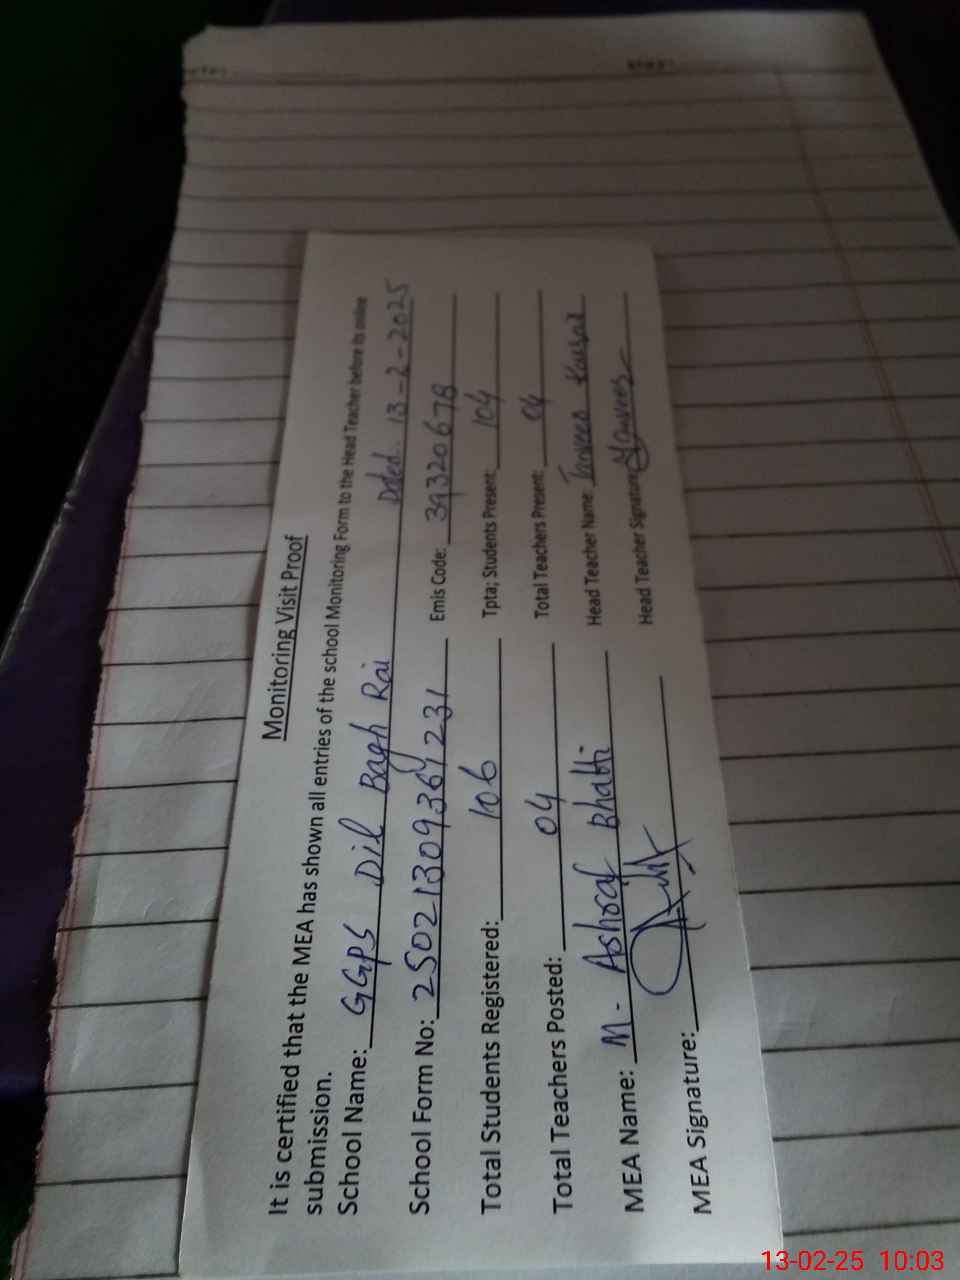 Monitoring Visit Proof
It is certified that the MEA has shown all entries of the school Monitoring Form to the Head Teacher before its online
submission.
School Name: GGPS Dil Bagh Rai Dated. 13-2-2025
School Form No: 25021309367231 Emis Code: 39320678
Total Students Registered: 106 Tpta; Students Present: 104
Total Teachers Posted: 04 Total Teachers Present: 04
MEA Name: M- Ashraf Bhatti Head Teacher Name: Tanveer Kausar
MEA Signature: Head Teacher Signature
13-02-25 10:03